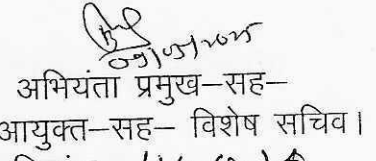 09/05/2025
अभियंता प्रमुख–सह–
आयुक्त–सह– विशेष सचिव।